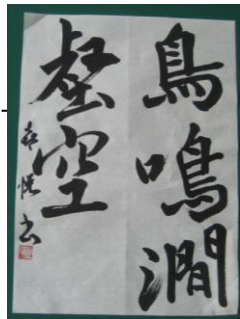 鳥鳴澗
壑空